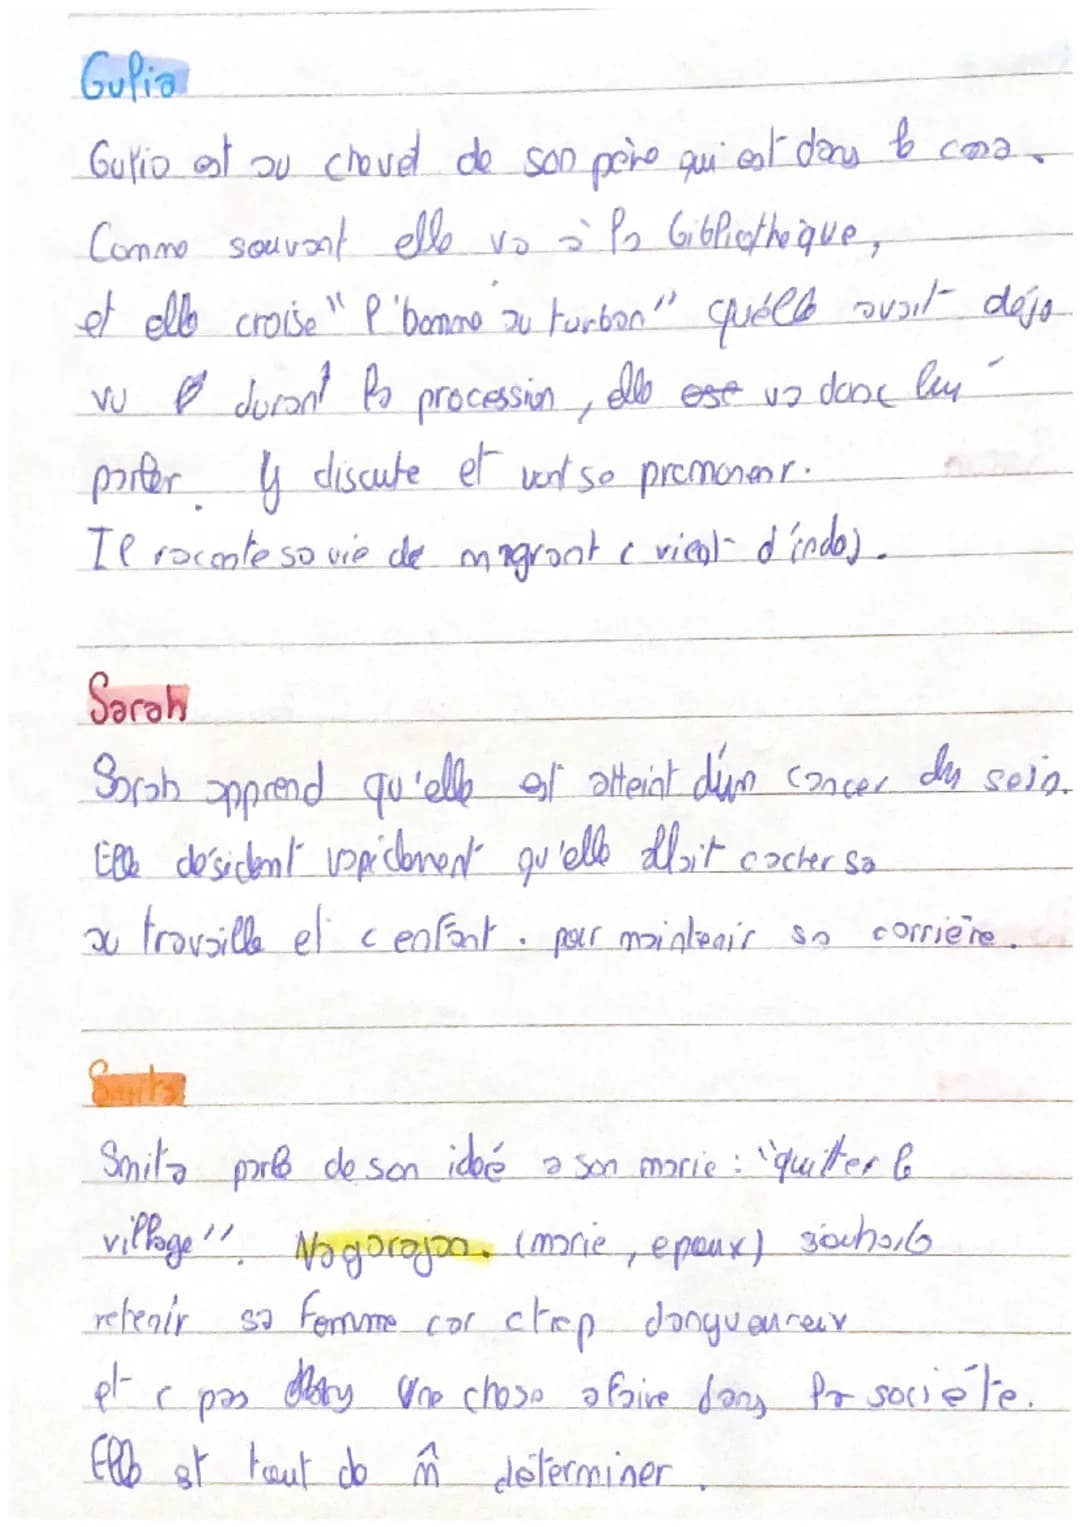 Gulia
Gulia est au chevet de son père qui est dans le coma.
Comme souvent elle va à la bibliothèque,
et elle croise "l'homme au turban" quélle avait déja
vu durant la procession, elle va donc luy
parler. Y discute et vont se promener.
Il raconte sa vie de magrant (vient d'inde).
Sarah
Sarah apprend qu'elle est atteint d'un cancer du sein.
Elle désident rapidement qu'elle allait cacher sa
au travaille et c enfant. pour maintenir sa carrière.
Smita
Smita parle de son idée a son marie : "quitter le
village". Nagarajan. (marie, epoux) souhaite
retenir sa femme car ctrop dangueureux
et c pas une chose a faire dans la société.
Elle est tout de m̂ déterminer.